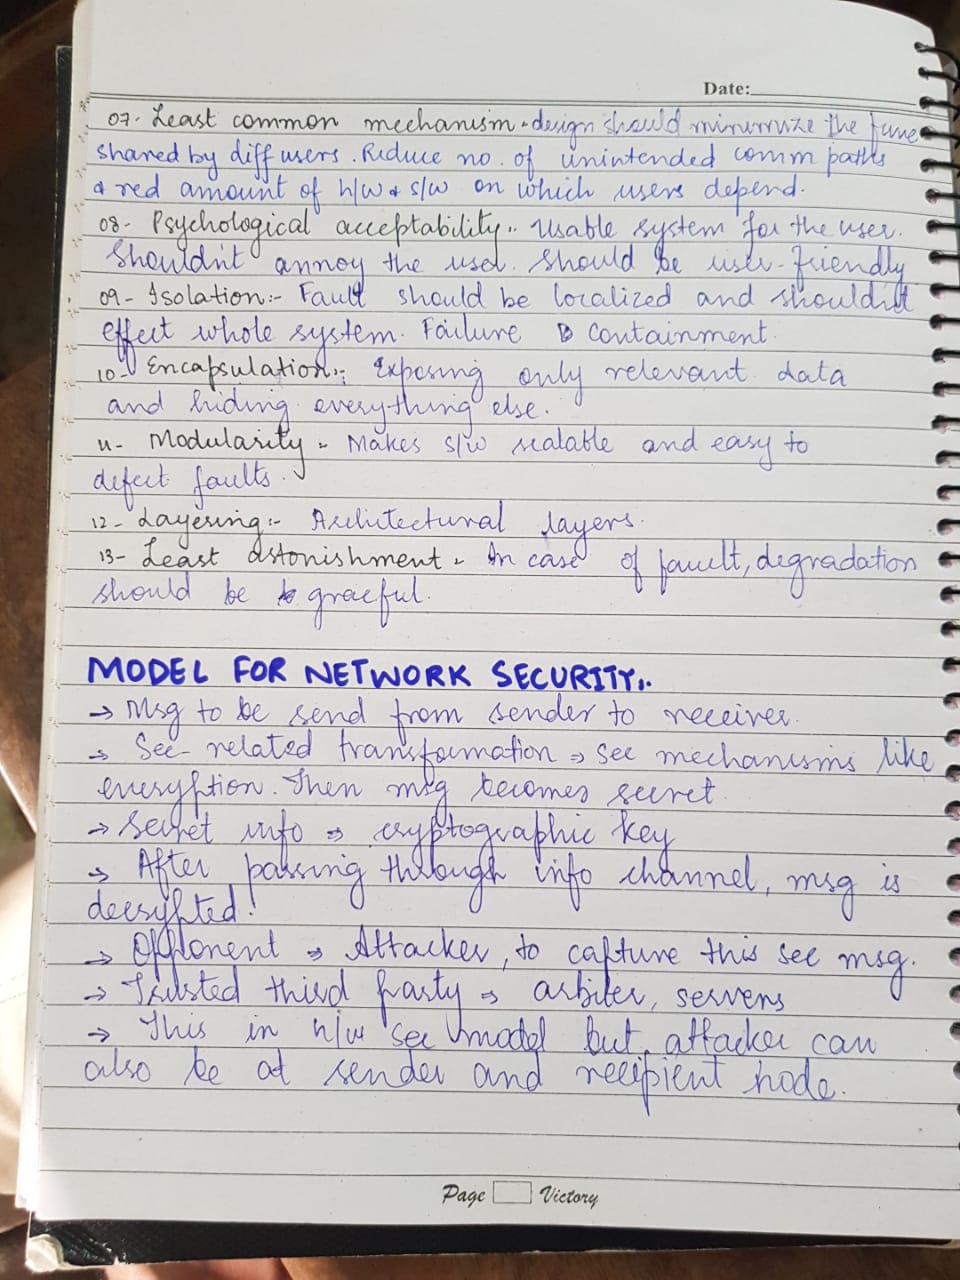 Date:
07- Least common mechanism - design should minimize the func
shared by diff users. Reduce no. of unintended comm paths
& red amount of h/w & s/w on which users depend.
08- Psychological acceptability :- Usable system for the user.
Shouldn't annoy the user. Should be user-friendly
09- Isolation :- Fault should be localized and shouldn't
effect whole system. Failure Containment.
10- Encapsulation :- Exposing only relevant data
and hiding everything else.
11- Modularity - Makes s/w scalable and easy to
detect faults.
12- Layering :- Architectural layers.
13- Least astonishment - In case of fault, degradation
should be graceful.
MODEL FOR NETWORK SECURITY:-
→ Msg to be send from sender to receiver.
→ Sec- related transformation → sec mechanisms like
encryption. Then msg becomes secret
→ Secret info → cryptographic key
→ After passing through info channel, msg is
decrypted!
→ Opponent → Attacker, to capture this sec msg.
→ Trusted third party → arbiter, servers
→ This in n/w sec model but attacker can
also be at sender and recipient node.
Page Victory